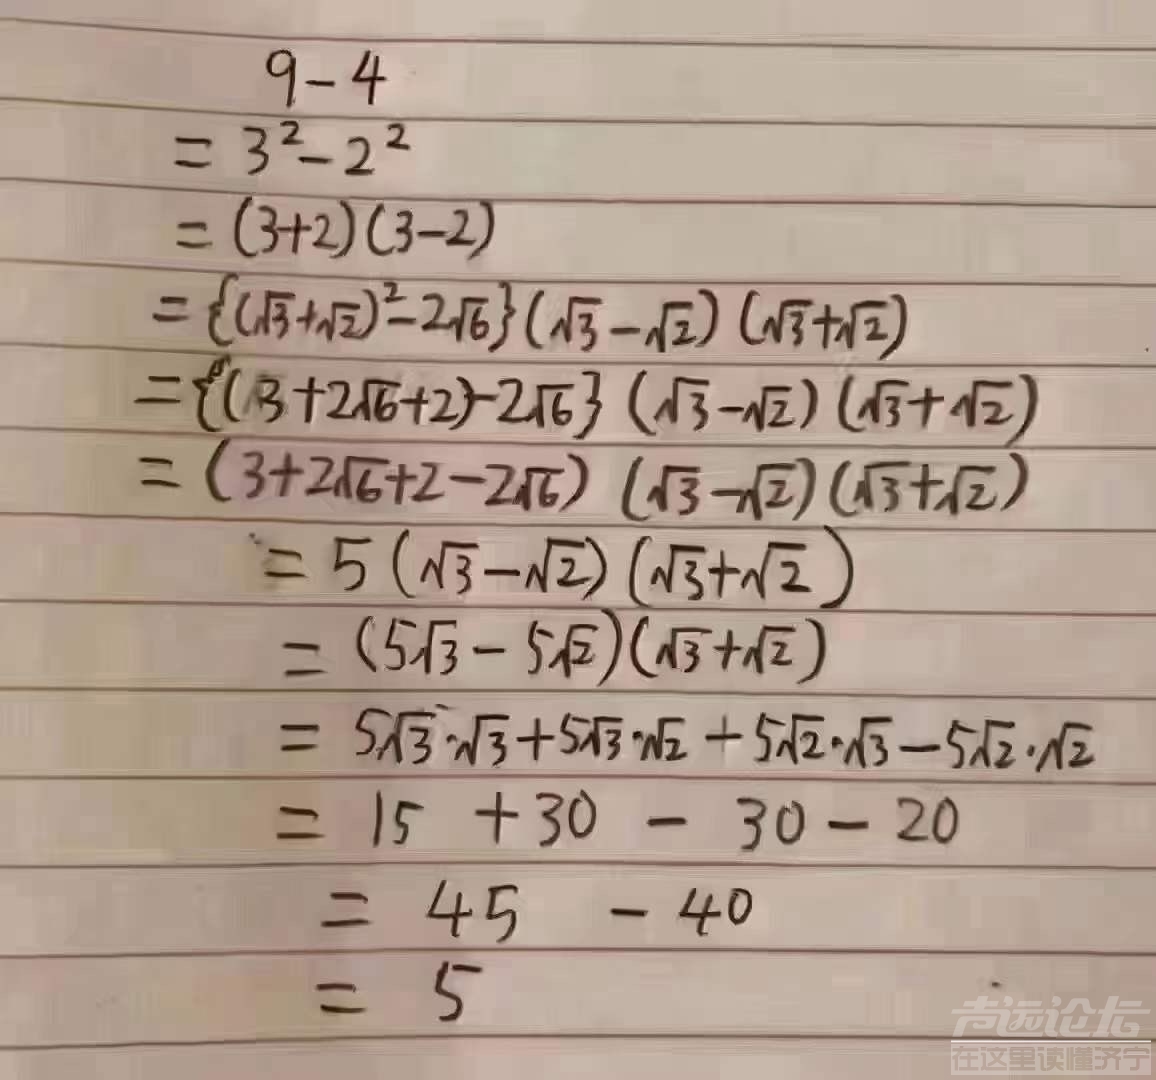 9-4
= 3²-2²
= (3+2)(3-2)
= {(√3+√2)²-2√6}(√3-√2)(√3+√2)
= {(3+2√6+2)-2√6}(√3-√2)(√3+√2)
= (3+2√6+2-2√6)(√3-√2)(√3+√2)
= 5(√3-√2)(√3+√2)
= (5√3-5√2)(√3+√2)
= 5√3·√3+5√3·√2+5√2·√3-5√2·√2
= 15 +30 - 30 - 20
= 45 - 40
= 5
声远论坛
在这里读懂济宁